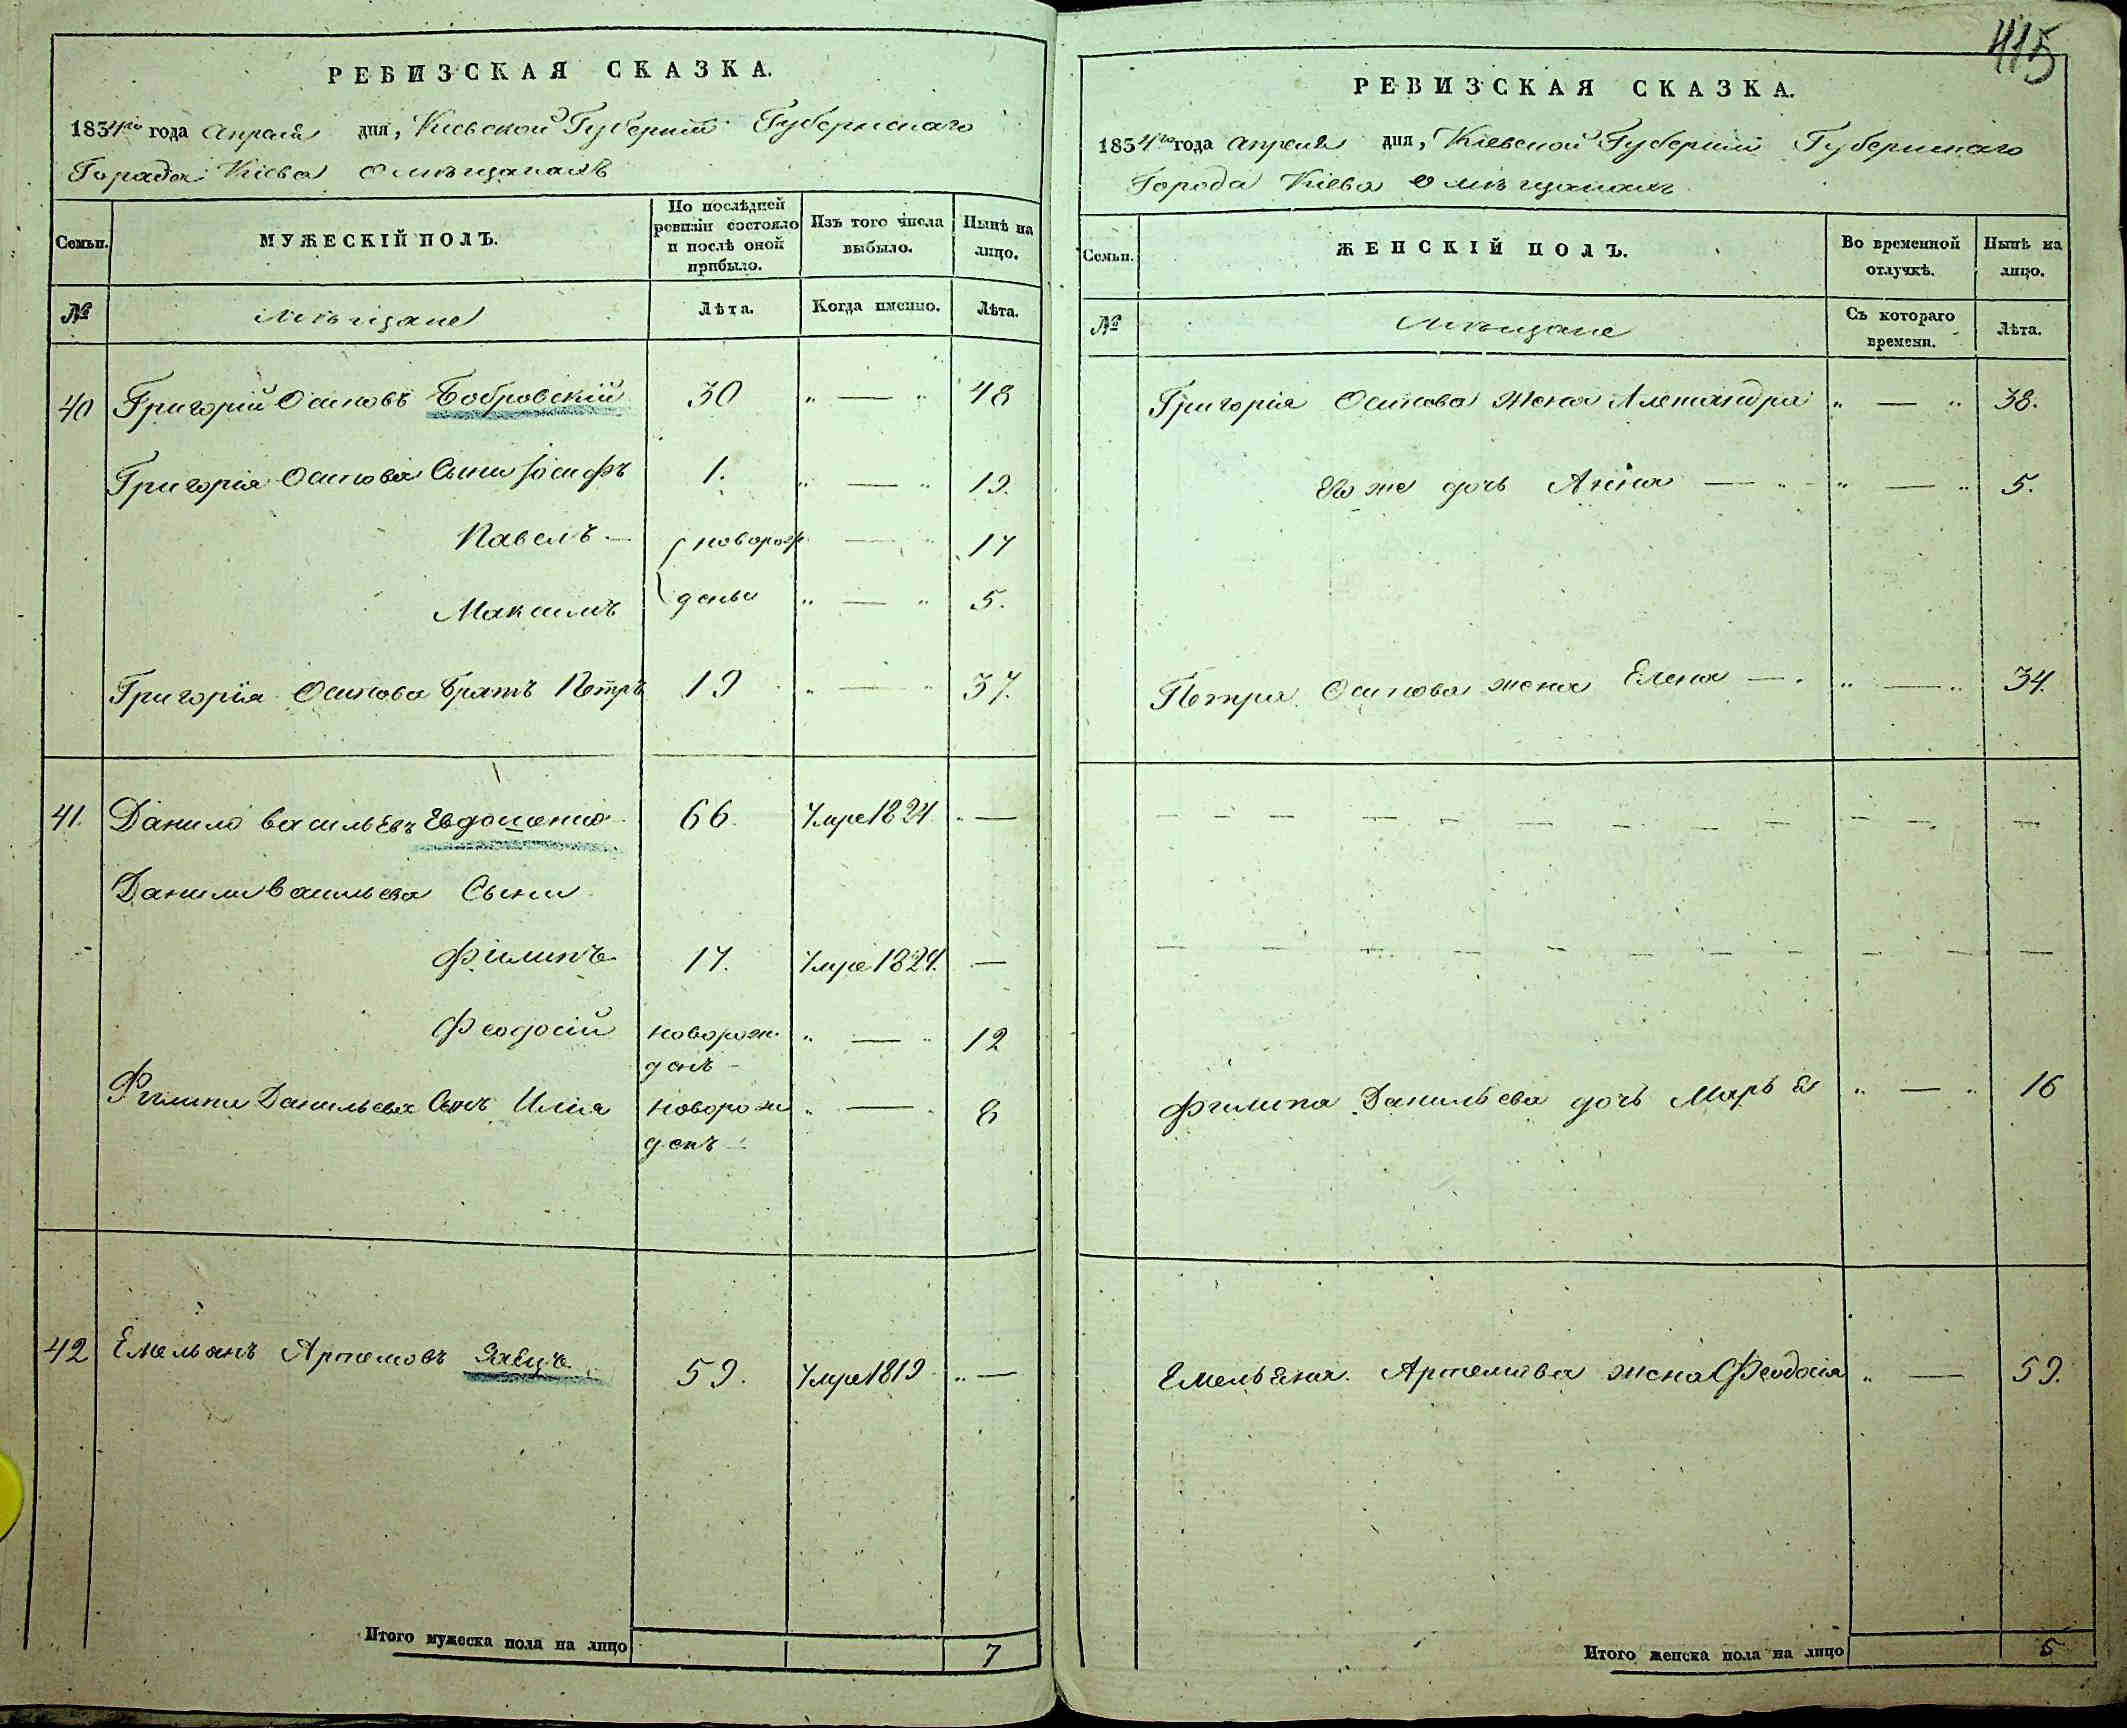 415
РЕВИЗСКАЯ СКАЗКА.
1834го года Апреля дня, Киевской Губернии Губернскаго
Города Киева о мѣщанахъ
Семьи.
МУЖЕСКІЙ ПОЛЪ.
По послѣдней ревизіи состояло и послѣ оной прибыло.
Изъ того числа выбыло.
Нынѣ на лицо.
№
Мѣщане
Лѣта.
Когда именно.
Лѣта.
40 Григорій Осиповъ Бобровскій 30 „ — „ 48
Григорія Осипова Сыни Іосифъ 1. „ — „ 19.
Павелъ — новорож „ — „ 17
Максимъ дены „ — „ 5.
Григорія Осипова Братъ Петръ 19 „ — „ 37.
41. Данило Васильевъ Евдошенко 66. Умре 1824. „ —
Данили Васильева Сыни
Филипъ 17. Умре 1824. —
Феодосій новорож „ — „ 12
денъ —
Филипа Данильева Сынъ Илія новорож „ — „ 8
денъ —
42 Емельянъ Артемовъ Заецъ 59. Умре 1819 „ —
Итого мужеска пола на лицо 7
РЕВИЗСКАЯ СКАЗКА.
1834го года Апреля дня, Кіевской Губерніи Губернскаго
Города Кіева о мѣщанахъ
Семьи.
ЖЕНСКІЙ ПОЛЪ.
Во временной отлучкѣ.
Нынѣ на лицо.
№
Мѣщане
Съ котораго времени.
Лѣта.
Григорія Осипова Жена Александра „ — „ 38.
Его же дочь Анна — „ — „ 5.
Петра Осипова жена Елена — „ — „ 34.
Филипа Данильева дочь Марья „ — „ 16
Емельяна Артемова жена Феодосія „ — 59.
Итого женска пола на лицо 5